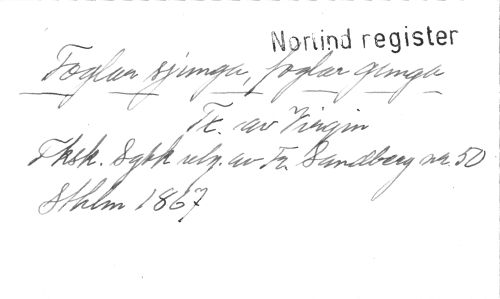 Nortind register
Foglar sjunga, foglar gunga
Tr. av Virgin
Fksk. Sgbk utg. av Fr. Sandberg nr. 50
Sthlm 1867